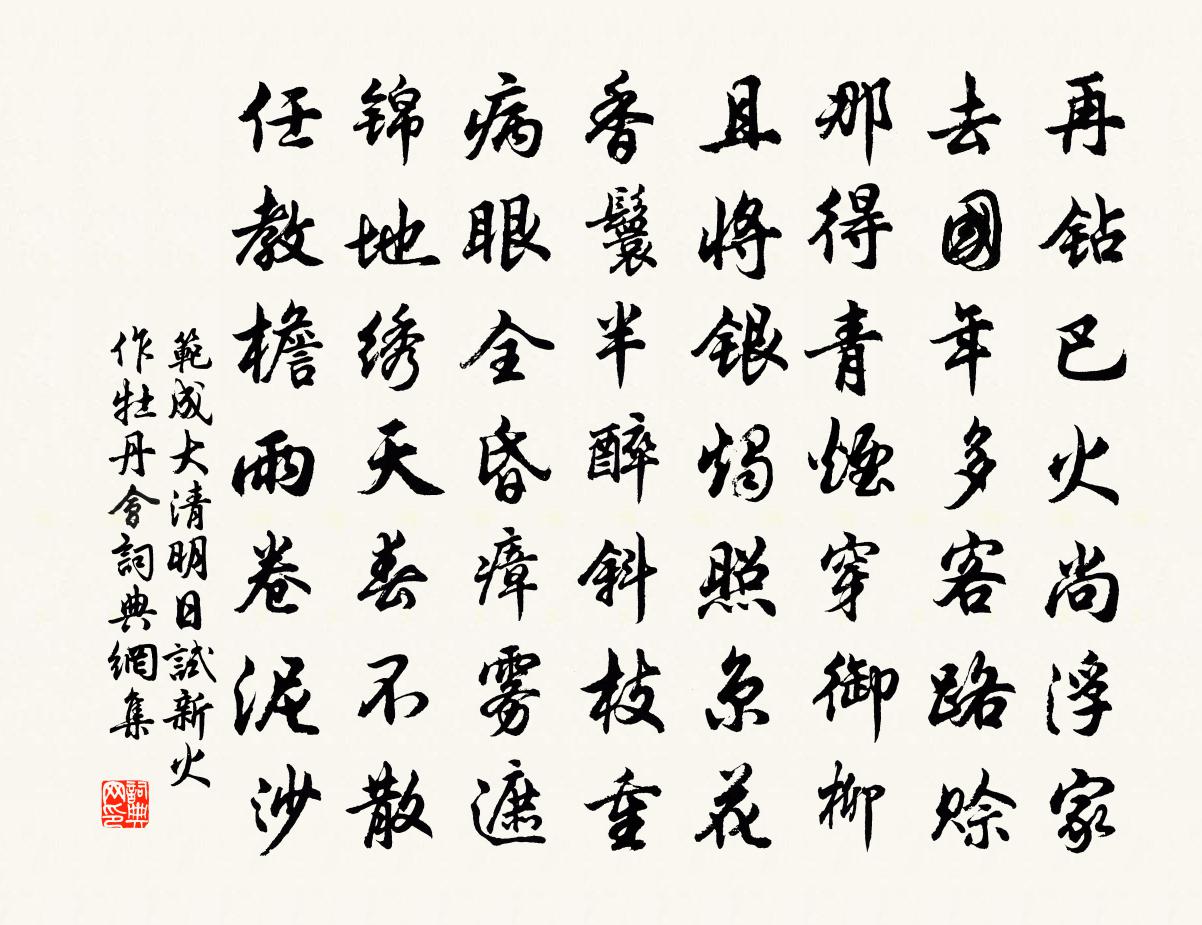 再钻巴火尚浮家
去國年多客路赊
那得青煙穿御柳
且将银燭照京花
香鬟半醉斜枝重
病眼全昏瘴雾遮
锦地绣天春不散
任教檐雨卷泥沙
範成大清明日試新火
作牡丹會詞典網集
詞典
网印